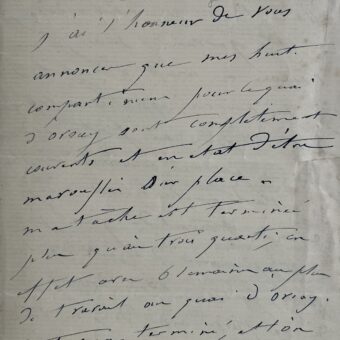 j'ai l'honneur de vous
annoncer que mes huit
compartiments pour le quai
d'orsay sont complètement
couverts et en état d'être
marouflés sur place.
ma tâche est terminée
plus qu'aux trois quarts, en
effet avec 6 semaines au plus
de travail au quai d'orsay.
terminé, et l'on